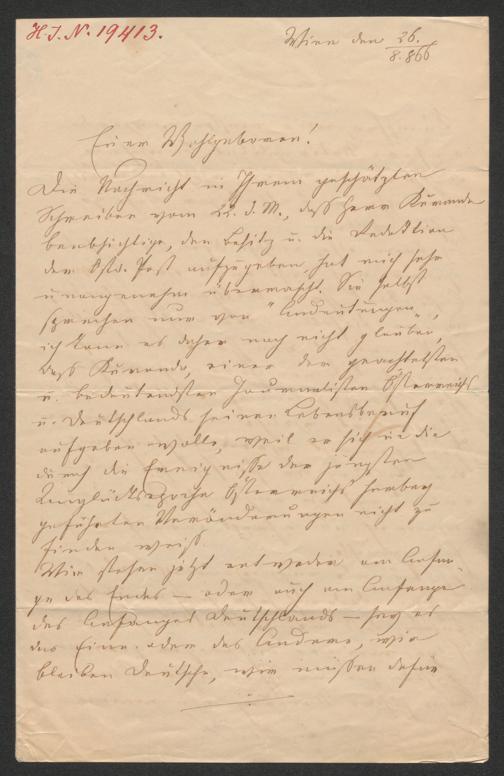 H. J. N. 19413.
Wien den 26./8. 866
Euer Wohlgeboren!
Die Nachricht in Ihrem geschätzten
Schreiben vom 22. d. M., daß Herr Kuranda
beabsichtige, den Besitz u. die Redaktion
der Ostd. Post aufzugeben, hat mich sehr
unangenehm überrascht. Sie selbst
sprechen nur von "Andeutungen",
ich kann es daher noch nicht glauben,
daß Kuranda, einer der geachtetsten
u. bedeutendsten Journalisten Österreichs
u. Deutschlands seinen Lebensberuf
aufgeben wolle, weil er sich in die
durch die Ereignisse der jüngsten
Unglücksepoche Österreichs herbey
geführten Veränderungen nicht zu
finden weiß.
Wir stehen jetzt entweder am Anfan-
ge des Endes — oder auch am Anfange
des Anfanges Deutschlands — sey es
das Eine oder das Andere, wir
bleiben Deutsche, wir müssen dafür